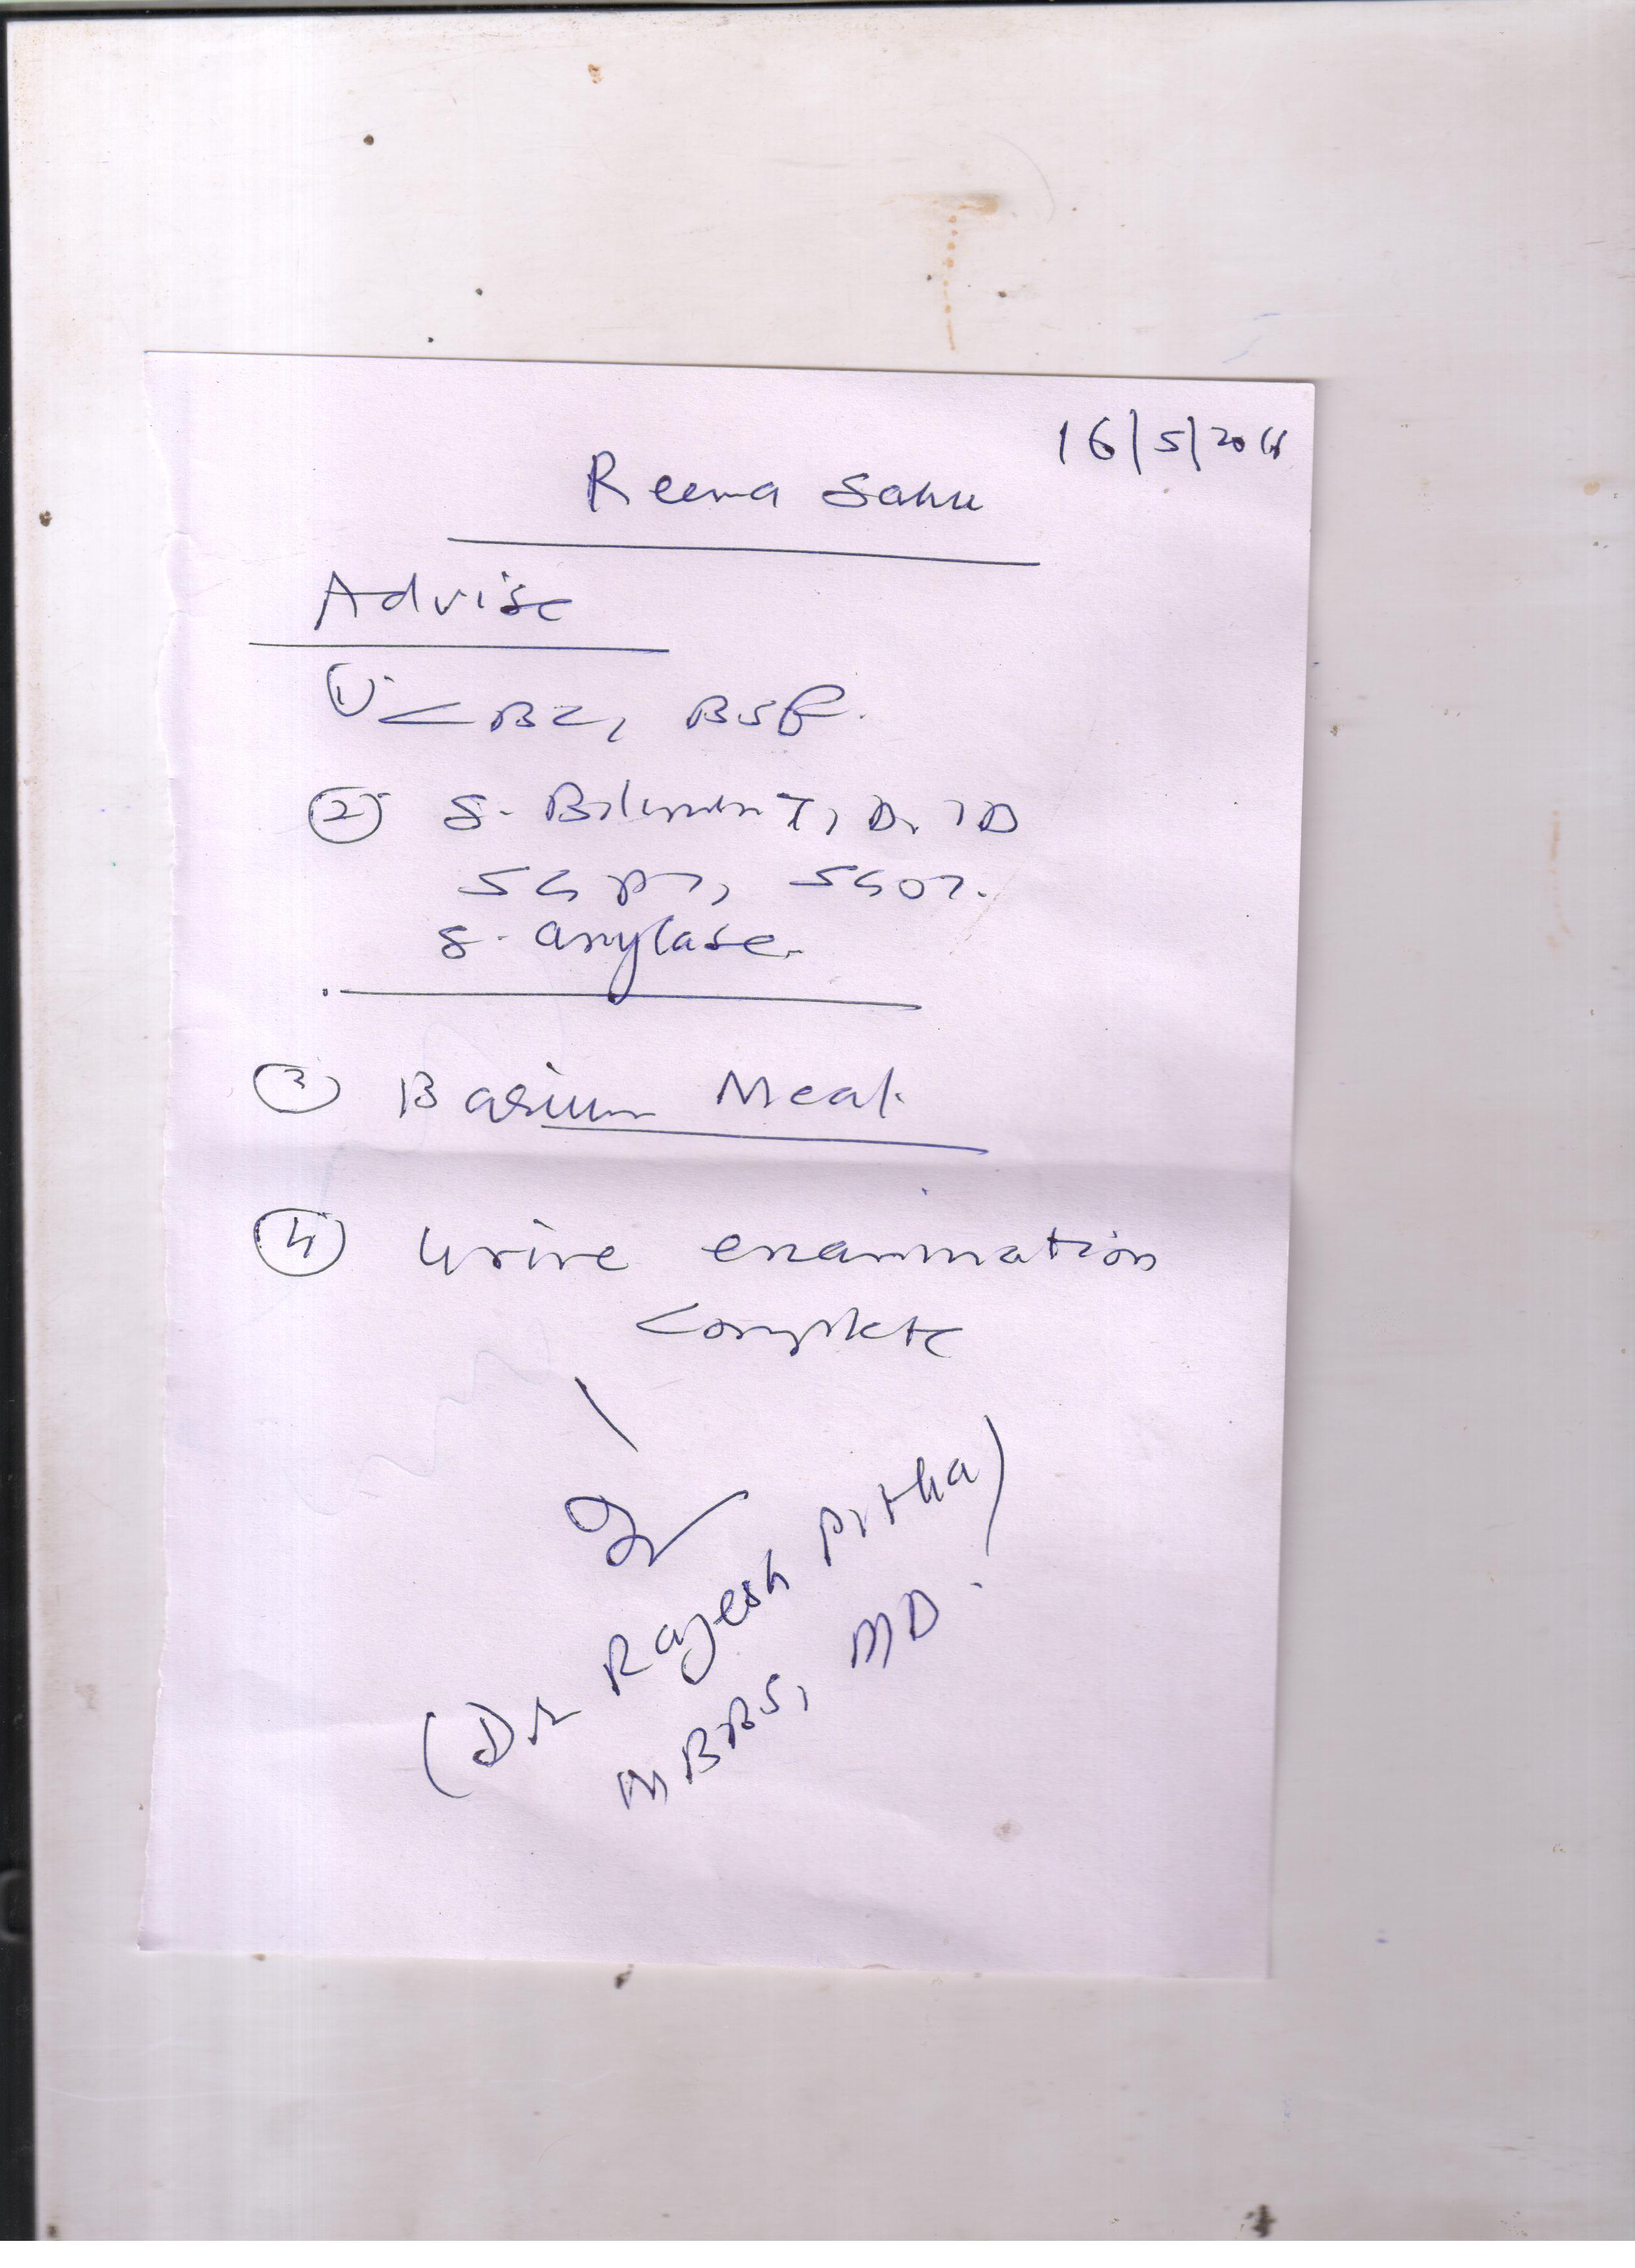 16/5/2018
Reema Sahu
Advise
① CBC, BSF.
② S. Bilirubin T, D, ID
SGPT, SGOT.
S. amylase.
③ Barium Meal.
④ Urine examination
complete
(Dr Rajesh Pitha)
MBBS, MD.